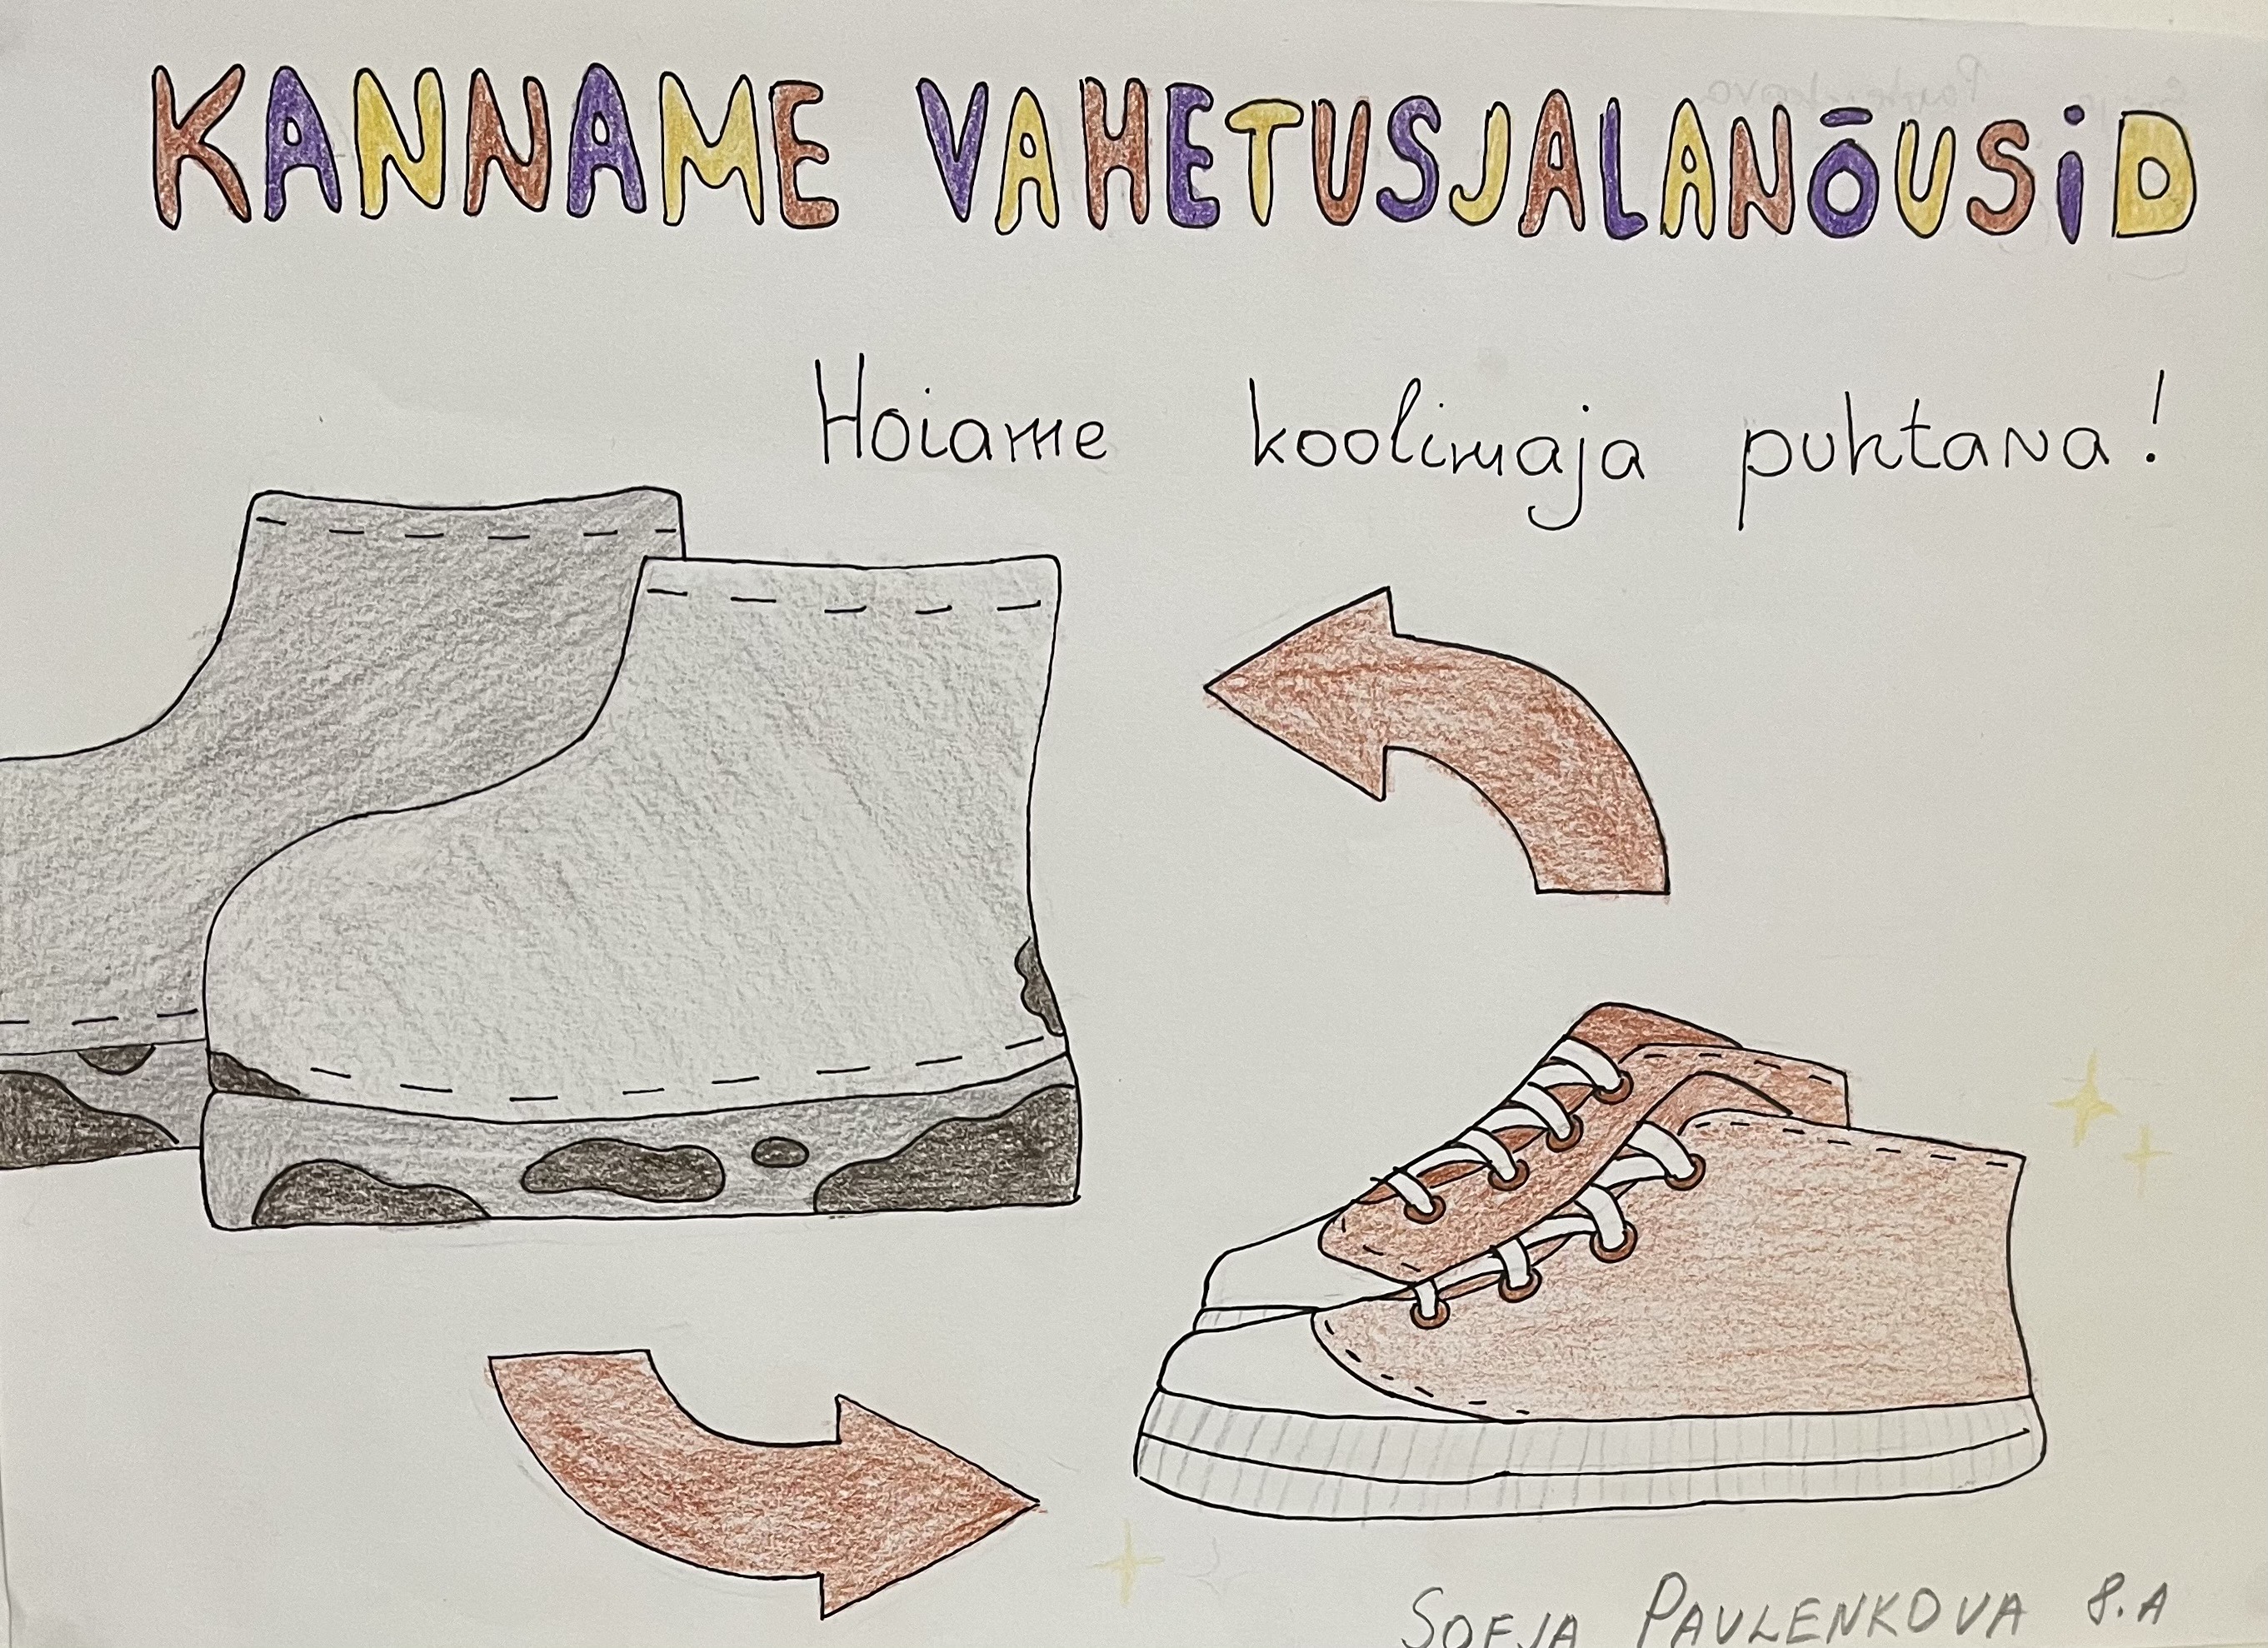 KANNAME VAHETUSJALANÕUSiD
Hoiame koolimaja puhtana!
SOFJA PAVLENKOVA 8.A